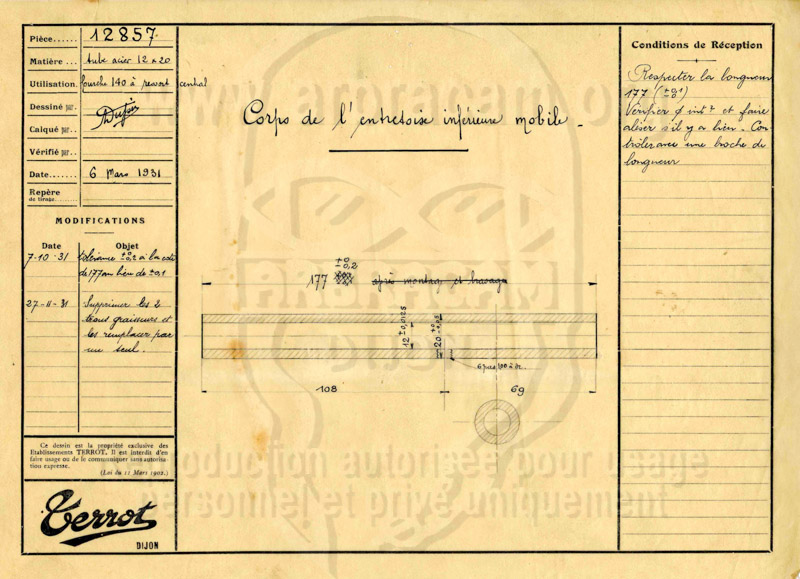 Pièce...... 12857
Matière ... tube acier 12 x 20
Utilisation. fourche 140 à ressort central
Dessiné par.
Calqué par..
Vérifié par..
Date....... 6 Mars 1931
Repère
de tirage.
MODIFICATIONS
Date Objet
7-10-31 tolérance ±0,2 à la cote
de 177 au lieu de ±0,1
27-11-31 Supprimer les 2
trous graisseurs et
les remplacer par
un seul.
Ce dessin est la propriété exclusive des
Etablissements TERROT. Il est interdit d'en
faire usage ou de le communiquer sans autorisa-
tion expresse.
(Loi du 11 Mars 1902.)
Terrot
DIJON
Corps de l'entretoise inférieure mobile
177 ±0 0,2 après montage et brasage
12 ±0,0125
20
108
69
Conditions de Réception
Respecter la longueur
177
Vérifier ø intr et faire
aléser s'il y a lieu. Con
trôler avec une broche de
longueur
reproduction autorisée pour usage
personnel et privé uniquement